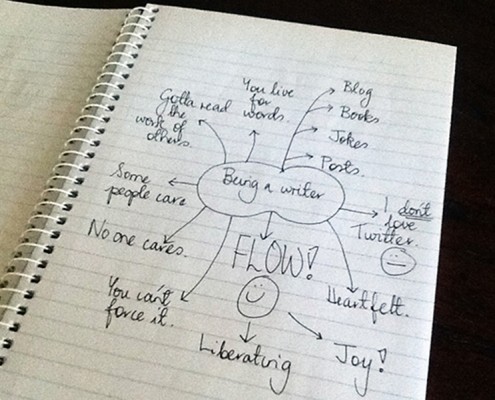 Gotta read
the
work of
others.
You live
for
words.
Blog
Books
Jokes
Posts.
Being a writer
Some
people care
No one cares.
You can't
force it.
FLOW!
Liberating
Joy!
Heartfelt.
I don't
love
Twitter.